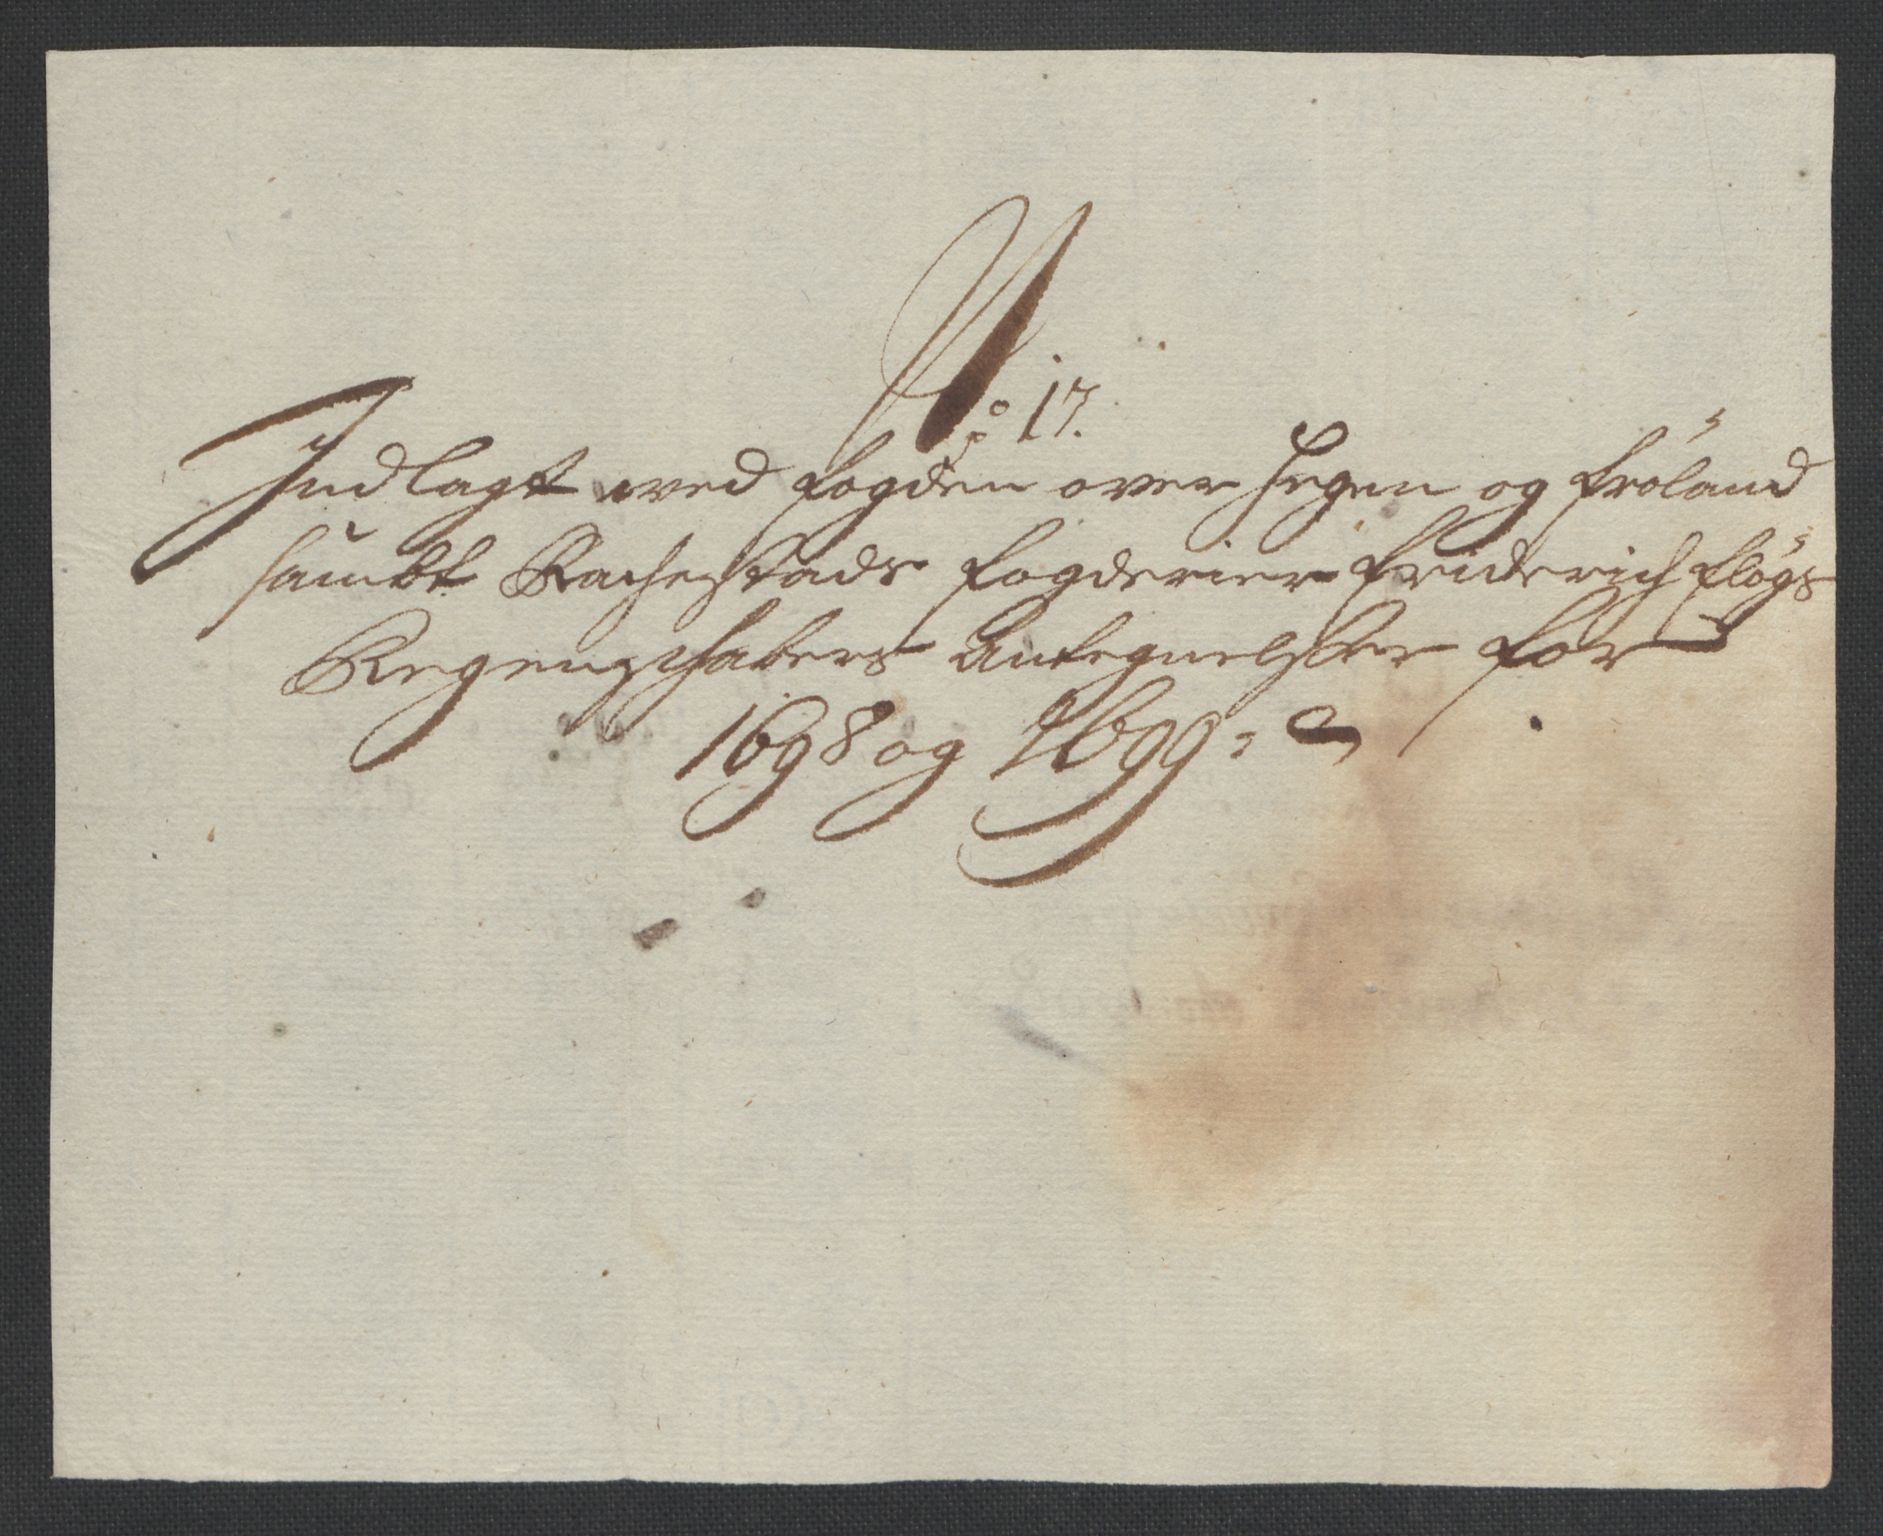 No: 17.
Indlagt wed fogden ower Hegen og Fröland
sambt Rachestads fogderier Friderich Fløgs
Regenschabers Antegnelsser for
1698 og 1699: